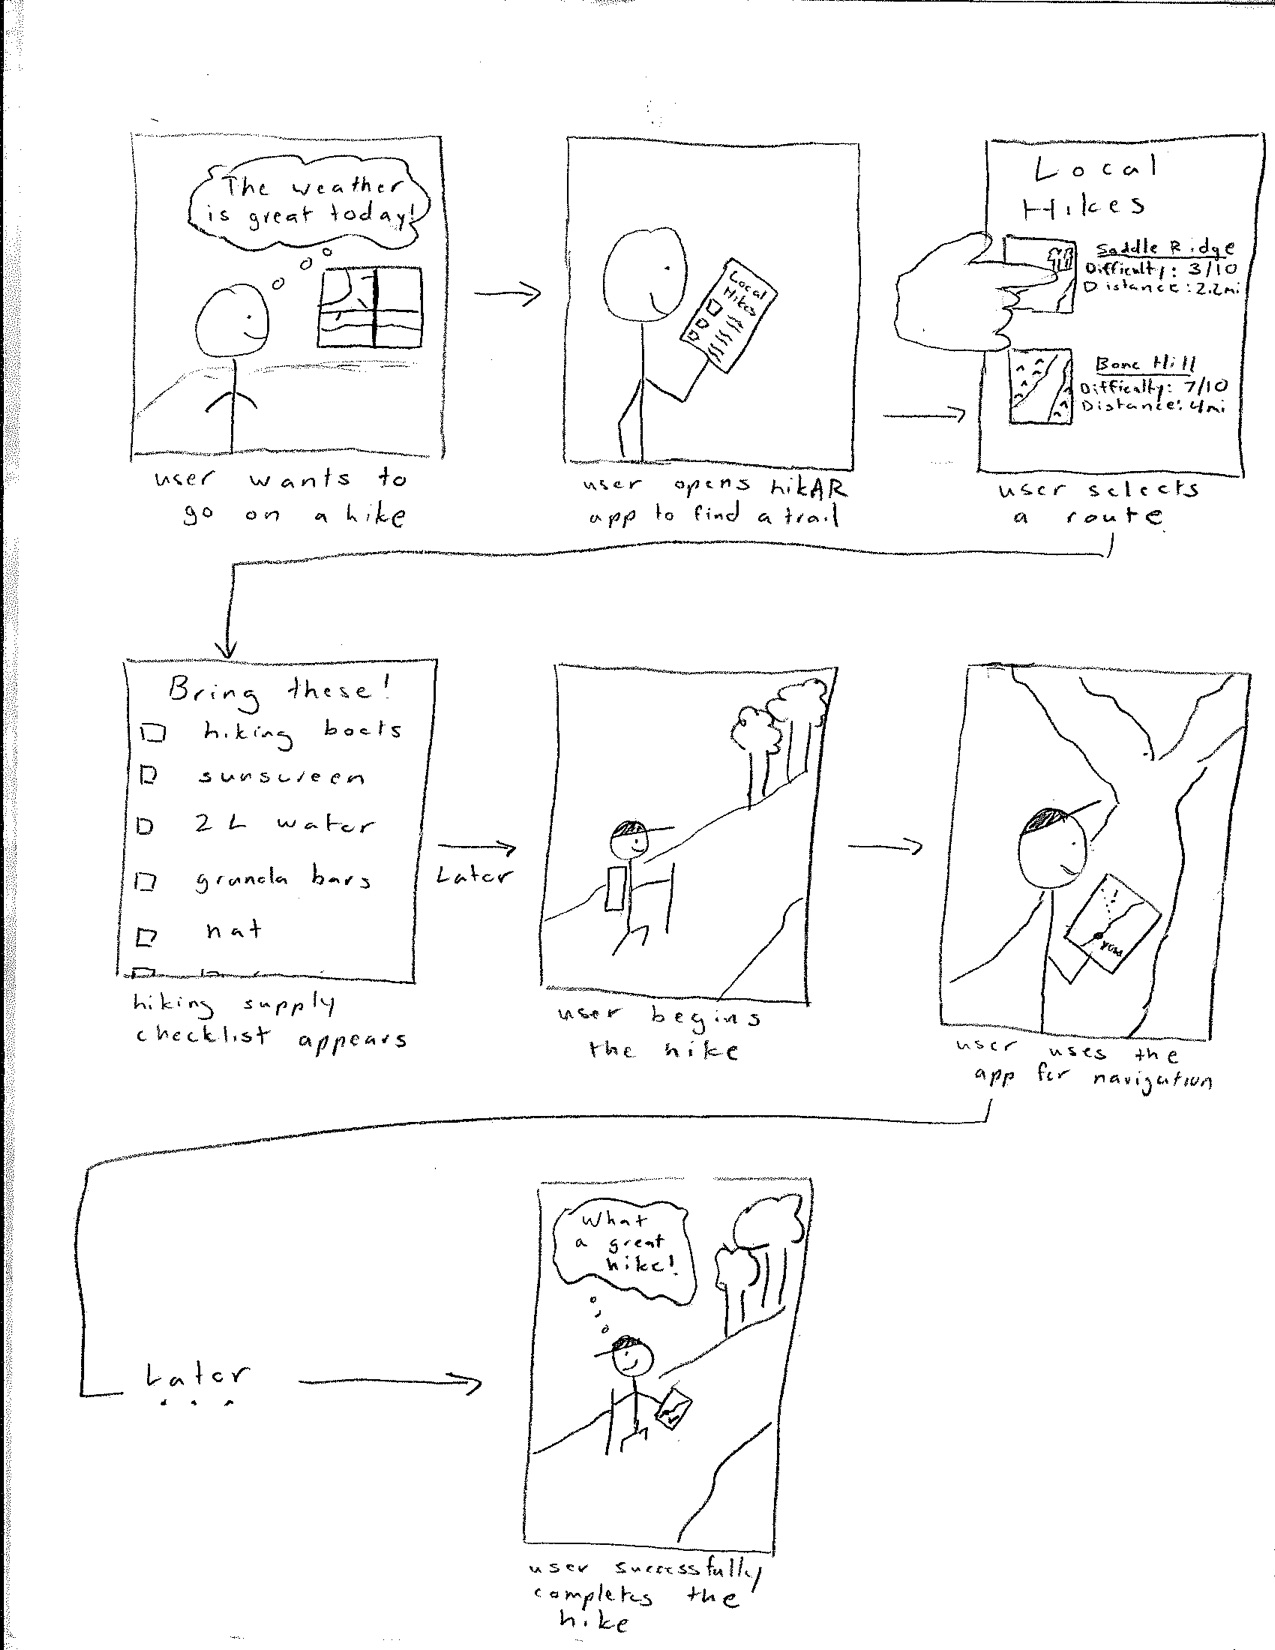 The weather
is great today!
user wants to
go on a hike
Local
Hikes
user opens hikAR
app to find a trail
Local
Hikes
Saddle Ridge
Difficulty: 3/10
Distance: 2.2mi
Bone Hill
Difficulty: 7/10
Distance: 4mi
user selects
a route
Bring these!
hiking boots
sunscreen
2 L water
granola bars
hat
hiking supply
checklist appears
Later
user begins
the hike
you
user uses the
app for navigation
Later
...
What
a great
hike!
user successfully
completes the
hike